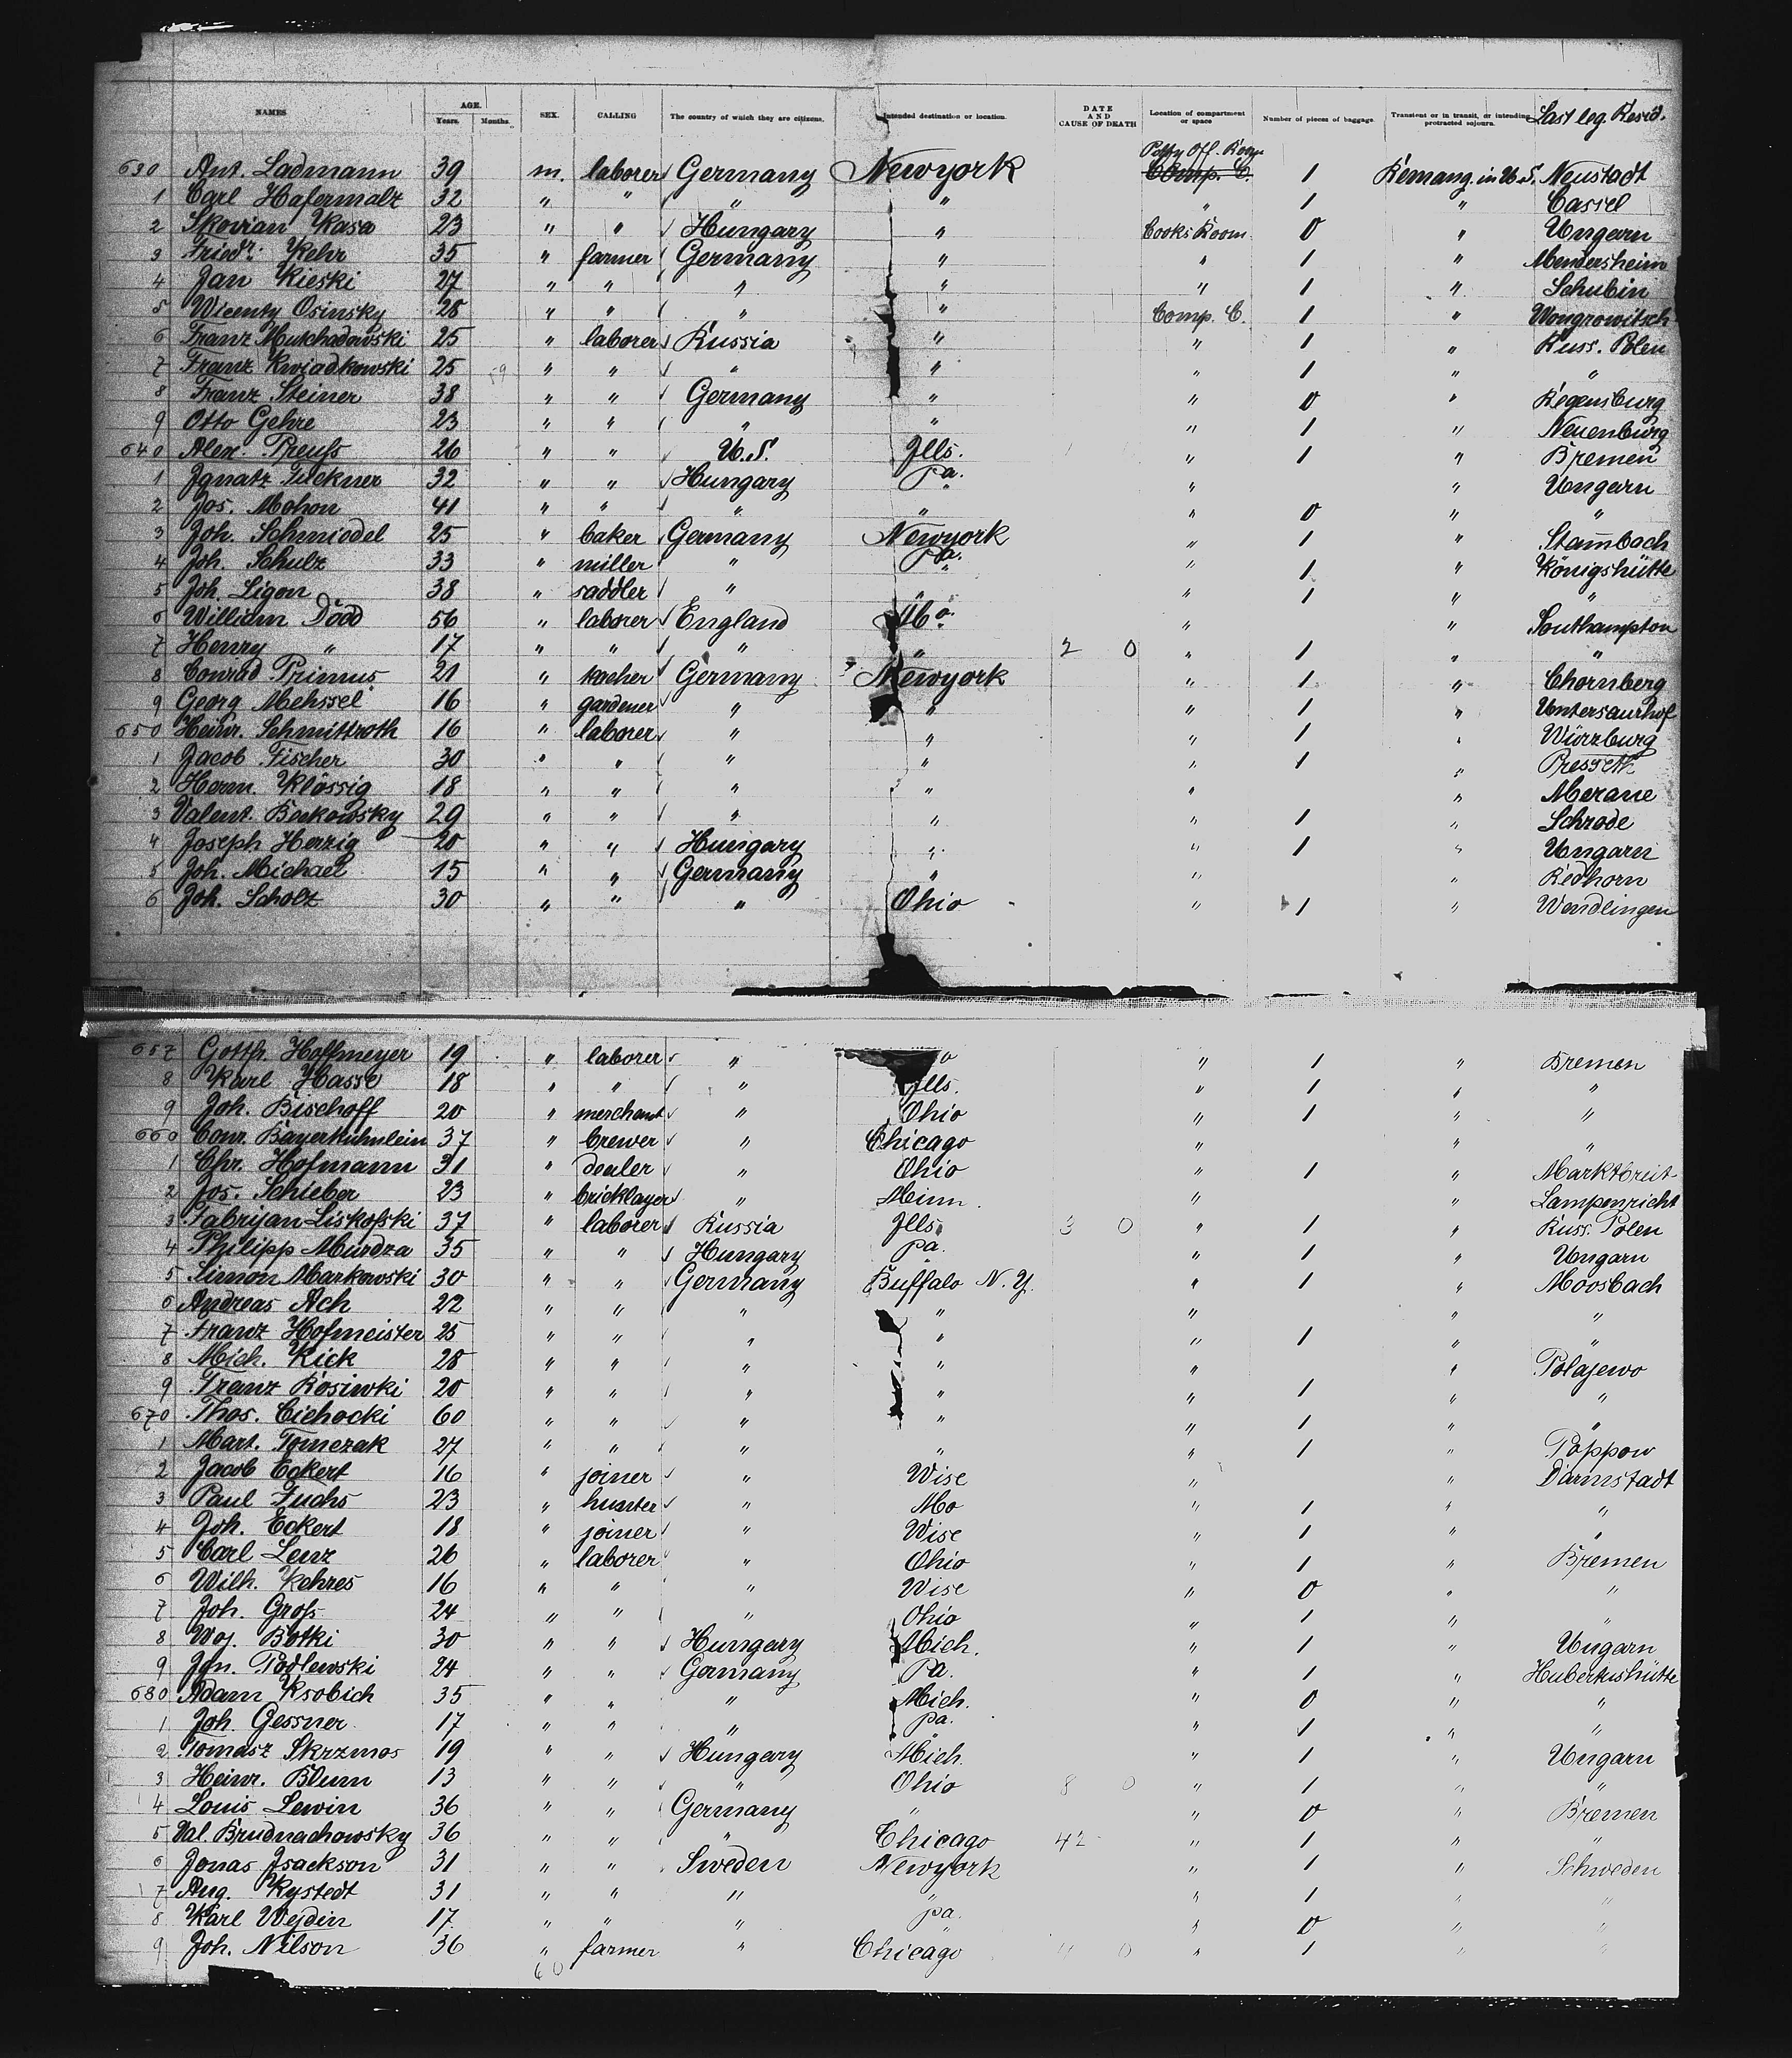 NAMES AGE. Years. Months. SEX. CALLING The country of which they are citizens. Intended destination or location. DATE AND CAUSE OF DEATH Location of compartment or space Number of pieces of baggage. Transient or in transit, or intending protracted sojourn. Last leg. Resid.
Petty Off. Room
630 Ant. Ladmann 39 m. laborer Germany Newyork Comp. C. 1 Remang. in U.S. Neustadt
1 Carl Hafermalz 32 " " " " " 1 " Cassel
2 Skovian Kasa 23 " " Hungary " Cooks Room 0 " Ungarn
3 Friedr. Kehr 35 " farmer Germany " " 1 " Memersheim
4 Jan Kieski 27 " " " " " 1 " Schubin
5 Wicenty Osinsky 28 " " " " Comp. C. 1 " Wongrowitsch
6 Franz Mukchadowski 25 " laborer Russia " " 1 " Russ. Polen
7 Franz Kwiadkowski 25 59 " " " " " 1 " "
8 Franz Steiner 38 " " Germany " " 0 " Regensburg
9 Otto Gehre 23 " " " " " 1 " Neuenburg
640 Alex. Preuß 26 " " U.S. Ills. " 1 " Bremen
1 Ignatz Fuckner 32 " " Hungary Pa. " " Ungarn
2 Jos. Mohon 41 " " " " " 0 " "
3 Joh. Schmiodel 25 " baker Germany Newyork " 1 " Stambach
4 Joh. Schulz 33 " miller " Pa. " 1 " Königshütte
5 Joh. Ligon 38 " saddler " " " 1 " "
6 William Dodd 56 " laborer England Mo. " " Southampton
7 Henry " 17 " " " " 2 0 " 1 " "
8 Conrad Primus 21 " kocher Germany Newyork " 1 " Chornberg
9 Georg Mehssel 16 " gardener " " " 1 " Untersaurhof
650 Heinr. Schmittroth 16 " laborer " " " 1 " Würzburg
1 Jacob Fischer 30 " " " " " 1 " Presseck
2 Herm. Klössig 18 " " " " " " Merane
3 Valent. Borkowsky 29 " " " " " 1 " Schrode
4 Joseph Herzig 20 " " Hungary " " 1 " Ungarn
5 Joh. Michael 15 " " Germany " " " Redhorn
6 Joh. Scholz 30 " " " Ohio " 1 " Wendlingen
657 Gottfr. Hoffmeyer 19 " laborer " " 1 " Bremen
8 Karl Hasse 18 " " " Ills. " 1 " "
9 Joh. Bischoff 20 " merchant " Ohio " 1 " "
660 Conr. Bayerkuhnlein 37 " brewer " Chicago " " "
1 Chr. Hofmann 31 " dealer " Ohio " 1 " Marktbreit
2 Jos. Schieber 23 " bricklayer " Minn. " " Lampenricht
3 Fabrijan Liskofski 37 " laborer Russia Ills. 3 0 " 1 " Russ. Polen
4 Philipp Murdza 35 " " Hungary Pa. " 1 " Ungarn
5 Simon Markowski 30 " " Germany Buffalo N.Y. " 1 " Moosbach
6 Andreas Ach 22 " " " " " " "
7 Franz Hofmeister 25 " " " " " 1 " "
8 Mich. Kick 28 " " " " " " Polajewo
9 Franz Rosiwki 20 " " " " " 1 " "
670 Thos. Cichocki 60 " " " " " 1 " "
1 Mart. Tomczak 27 " " " " " 1 " Poppow
2 Jacob Eckert 16 " joiner " Wisc " " Darmstadt
3 Paul Fuchs 23 " hunter " Mo " 1 " "
4 Joh. Eckert 18 " joiner " Wisc " 1 " "
5 Carl Lenz 26 " laborer " Ohio " 1 " Bremen
6 Wilh. Kehres 16 " " " Wisc " 0 " "
7 Joh. Groß 24 " " " Ohio " 1 " "
8 Woj. Botki 30 " " Hungary Mich. " 1 " Ungarn
9 Jgn. Podlewski 24 " " Germany Pa. " 1 " Hubertushütte
680 Adam Ksobich 35 " " " Mich. " 0 " "
1 Joh. Gessner 17 " " " Pa. " 1 " "
2 Tomasz Skrzmos 19 " " Hungary Mich. " 1 " Ungarn
3 Heinr. Blum 13 " " " Ohio 8 0 " 1 " "
4 Louis Lewin 36 " " Germany " " 0 " Bremen
5 Val. Brudnachowsky 36 " " " Chicago 42 " 1 " "
6 Jonas Isackson 31 " " Sweden Newyork " 1 " Schweden
7 Aug. Rystedt 31 " " " " " 1 " "
8 Karl Wejdin 17 " " " Pa. " 0 " "
9 Joh. Nilson 36 " farmer " Chicago 4 0 " 1 " "
60